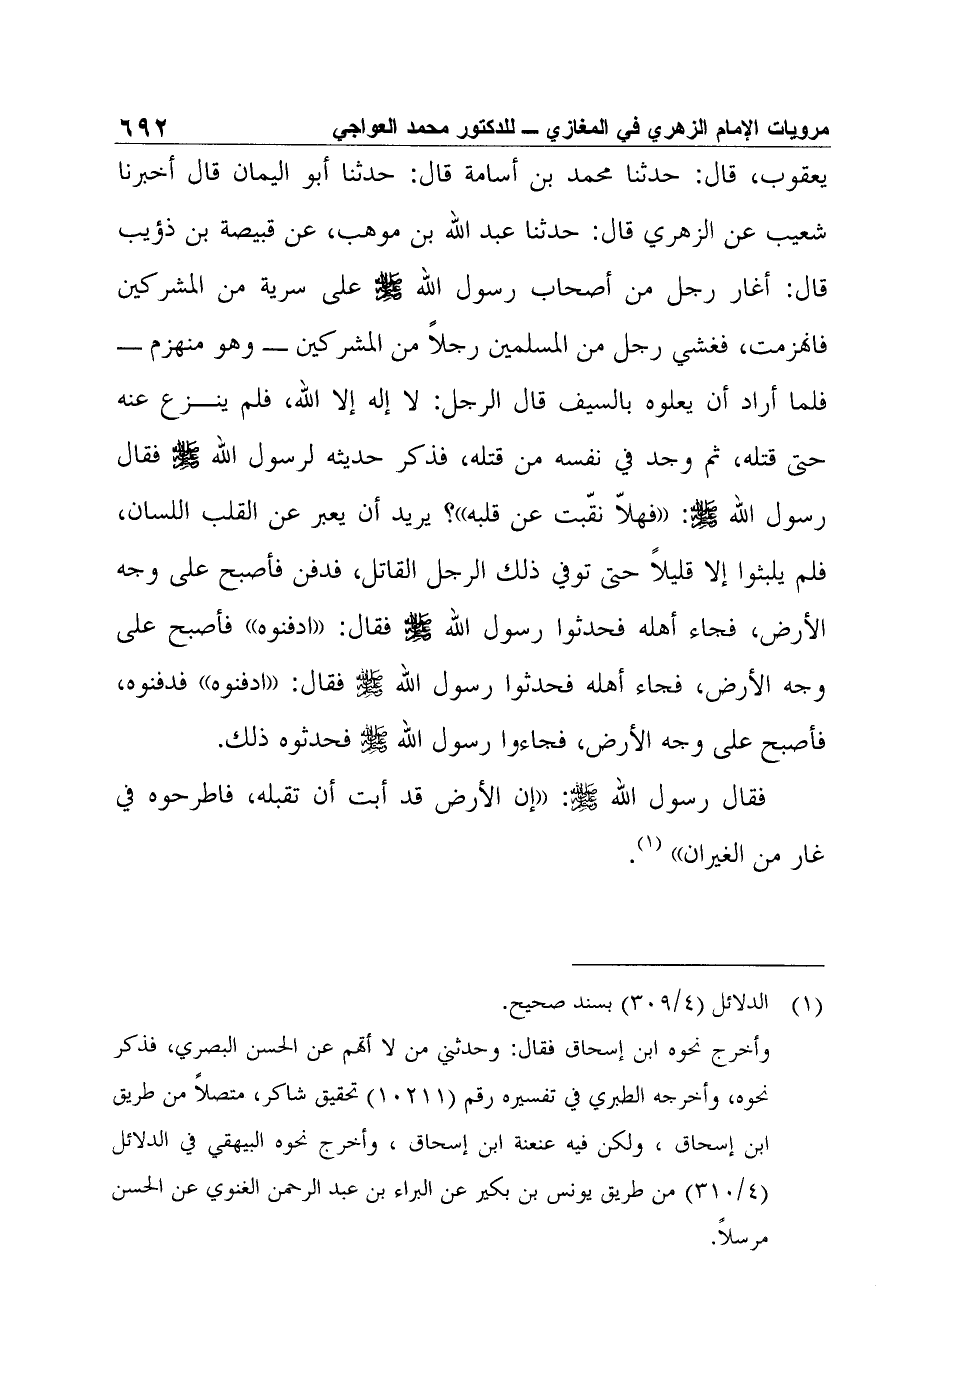 مرويات الإمام الزهري في المغازي ــ للدكتور محمد العواجي ٦٩٢
يعقوب، قال: حدثنا محمد بن أسامة قال: حدثنا أبو اليمان قال أخبرنا
شعيب عن الزهري قال: حدثنا عبد الله بن موهب، عن قبيصة بن ذؤيب
قال: أغار رجل من أصحاب رسول الله ﷺ على سرية من المشركين
فانهزمت، فغشي رجل من المسلمين رجلاً من المشركين ــ وهو منهزم ــ
فلما أراد أن يعلوه بالسيف قال الرجل: لا إله إلا الله، فلم ينـــزع عنه
حتى قتله، ثم وجد في نفسه من قتله، فذكر حديثه لرسول الله ﷺ فقال
رسول الله ﷺ: ((فهلاّ نقّبت عن قلبه))؟ يريد أن يعبر عن القلب اللسان،
فلم يلبثوا إلا قليلاً حتى توفي ذلك الرجل القاتل، فدفن فأصبح على وجه
الأرض، فجاء أهله فحدثوا رسول الله ﷺ فقال: ((ادفنوه)) فأصبح على
وجه الأرض، فجاء أهله فحدثوا رسول الله ﷺ فقال: ((ادفنوه)) فدفنوه،
فأصبح على وجه الأرض، فجاءوا رسول الله ﷺ فحدثوه ذلك.
فقال رسول الله ﷺ: ((إن الأرض قد أبت أن تقبله، فاطرحوه في
غار من الغيران)) (١).
(١) الدلائل (٣٠٩/٤) بسند صحيح.
وأخرج نحوه ابن إسحاق فقال: وحدثني من لا أتهم عن الحسن البصري، فذكر
نحوه، وأخرجه الطبري في تفسيره رقم (١٠٢١١) تحقيق شاكر، متصلاً من طريق
ابن إسحاق ، ولكن فيه عنعنة ابن إسحاق ، وأخرج نحوه البيهقي في الدلائل
(٣١٠/٤) من طريق يونس بن بكير عن البراء بن عبد الرحمن الغنوي عن الحسن
مرسلاً.